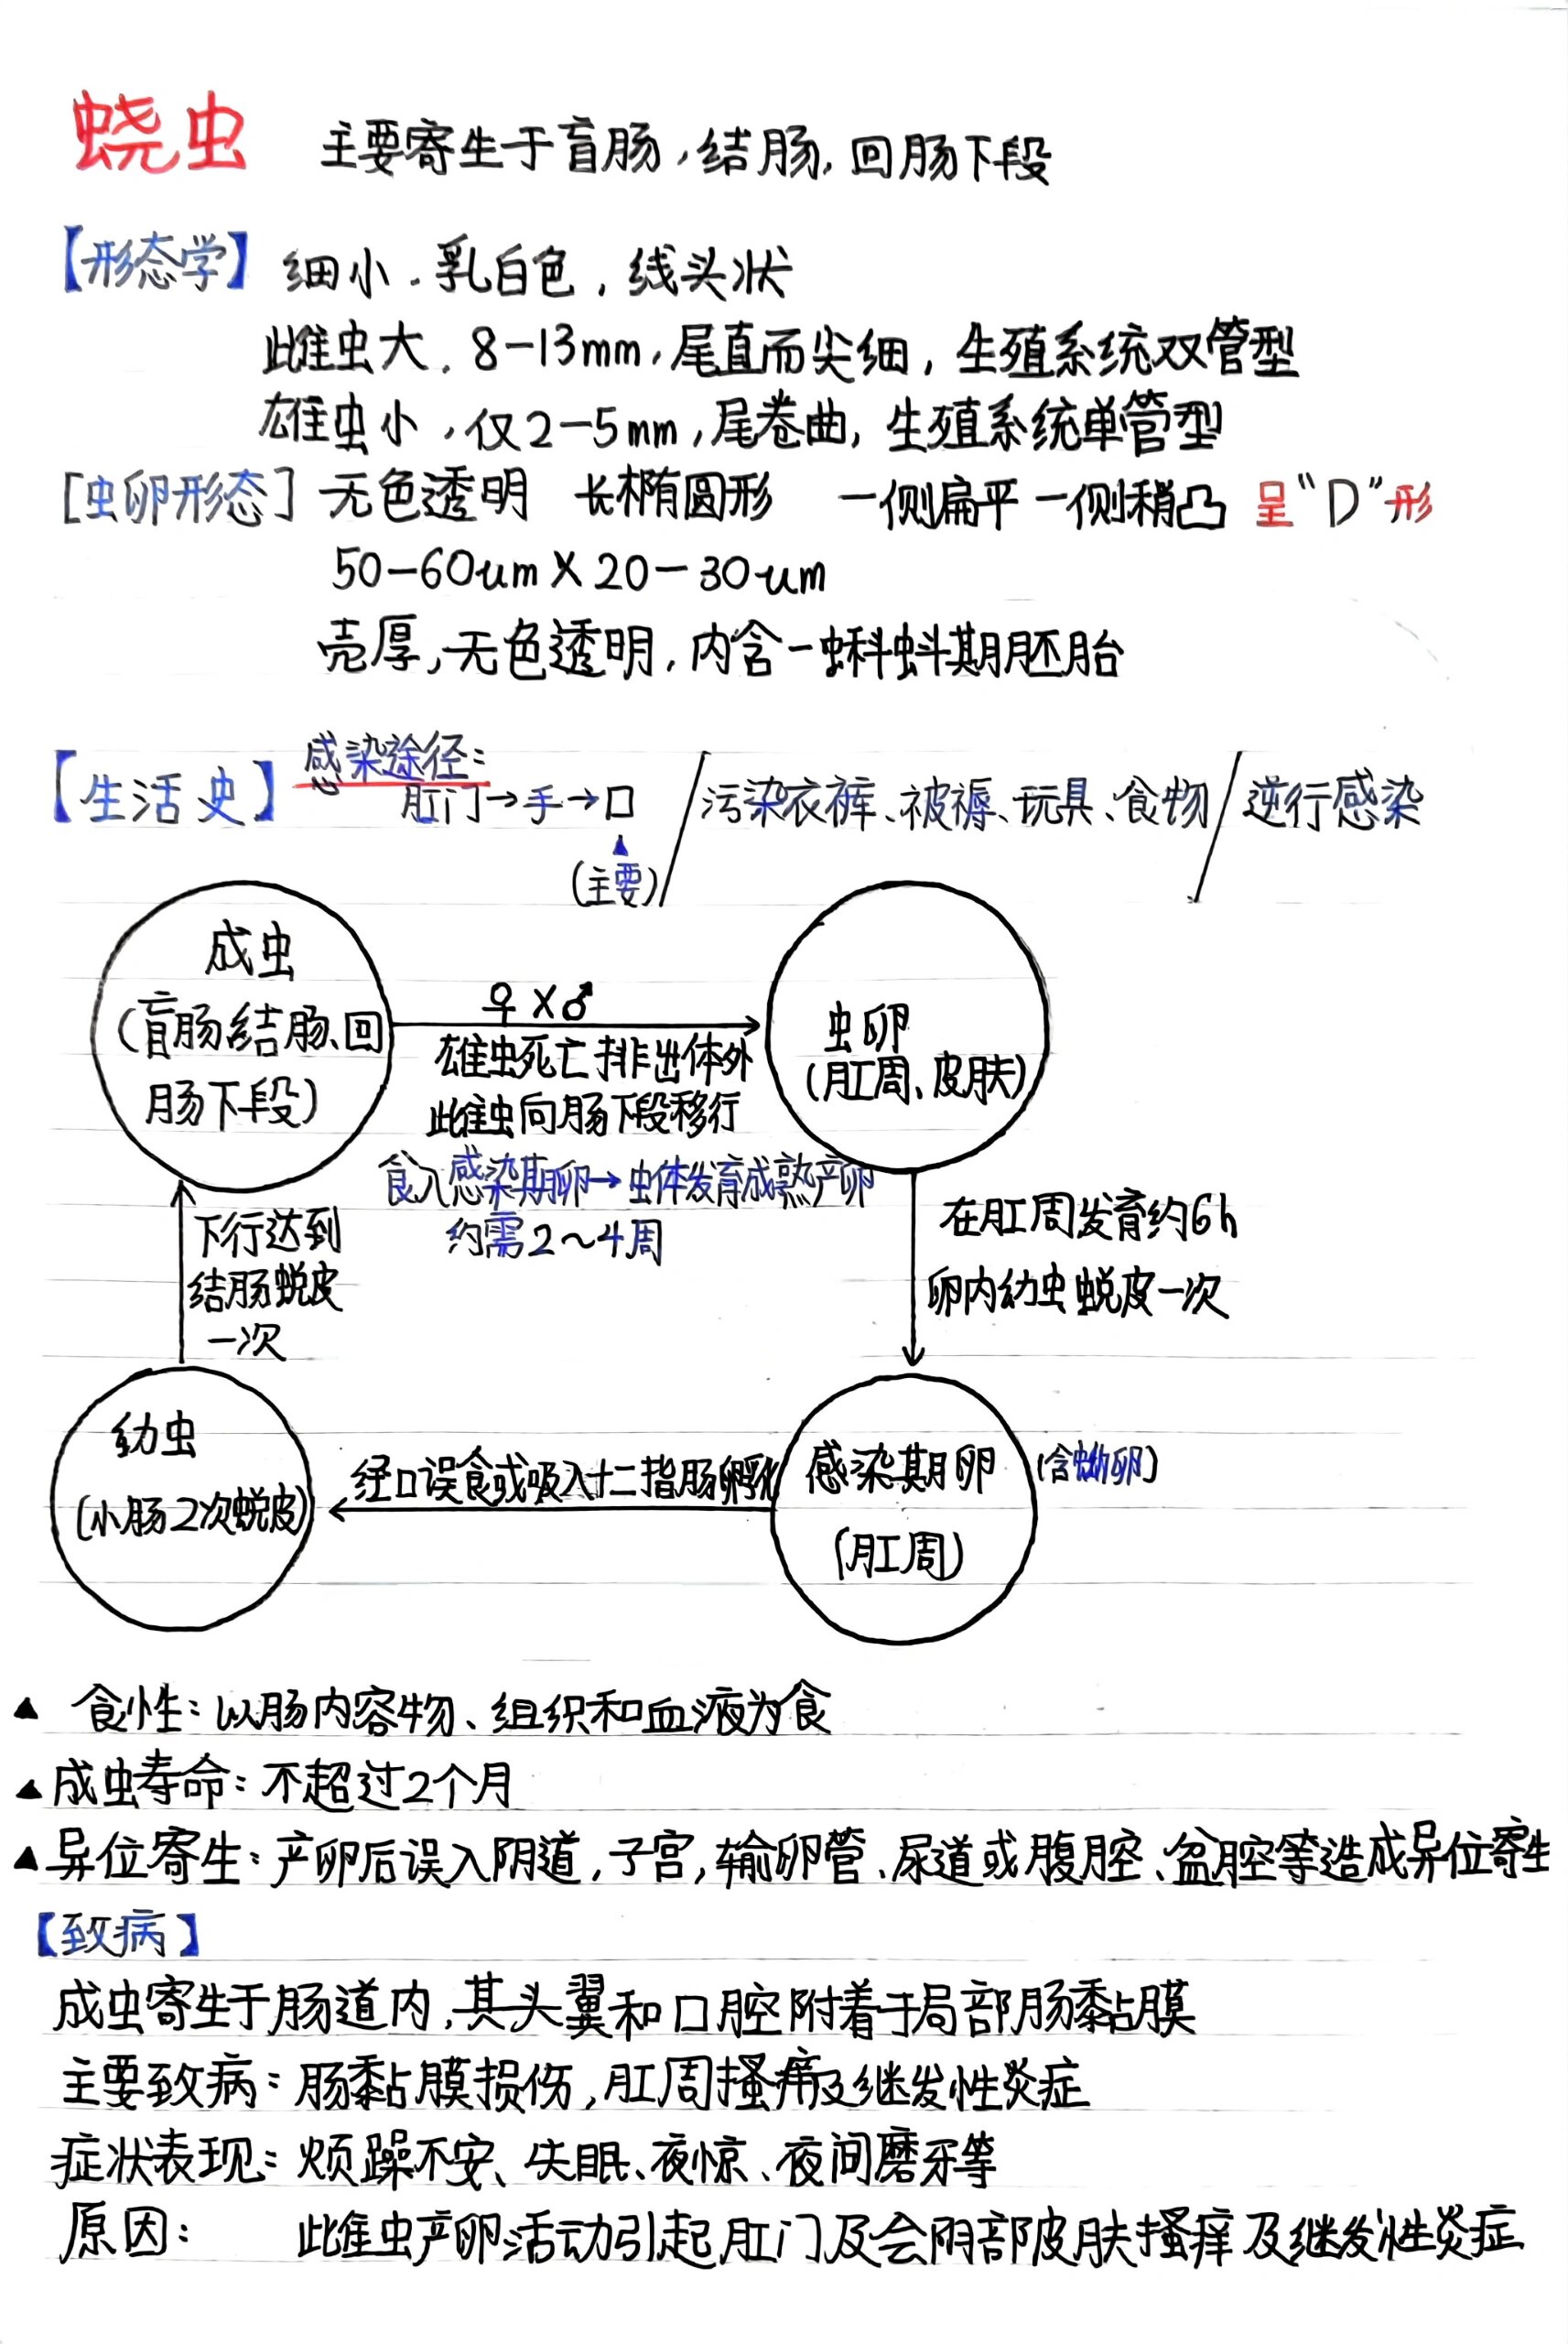 蛲虫 主要寄生于盲肠,结肠,回肠下段
【形态学】细小.乳白色,线头状
雌虫大.8-13mm,尾直而尖细,生殖系统双管型
雄虫小,仅2-5mm,尾卷曲,生殖系统单管型
[虫卵形态] 无色透明 长椭圆形 一侧扁平 一侧稍凸 呈“D”形
50-60um×20-30um
壳厚,无色透明,内含一蝌蚪期胚胎
【生活史】感染途径:
肛门→手→口 / 污染衣裤、被褥、玩具、食物 / 逆行感染
▲
(主要)
成虫
(盲肠、结肠、回
肠下段)
♀×♂
雄虫死亡排出体外
雌虫向肠下段移行
食入感染期卵→虫体发育成熟产卵
约需2~4周
虫卵
(肛周、皮肤)
在肛周发育约6h
卵内幼虫蜕皮一次
下行达到
结肠蜕皮
一次
幼虫
(小肠2次蜕皮)
经口误食或吸入十二指肠孵化
感染期卵
(肛周)
▲ 食性:以肠内容物、组织和血液为食
▲ 成虫寿命:不超过2个月
▲ 异位寄生:产卵后误入阴道,子宫,输卵管、尿道或腹腔、盆腔等造成异位寄生
【致病】
成虫寄生于肠道内,其头翼和口腔附着于局部肠黏膜
主要致病:肠黏膜损伤,肛周搔痒及继发性炎症
症状表现:烦躁不安、失眠、夜惊、夜间磨牙等
原因: 雌虫产卵活动引起肛门及会阴部皮肤搔痒及继发性炎症